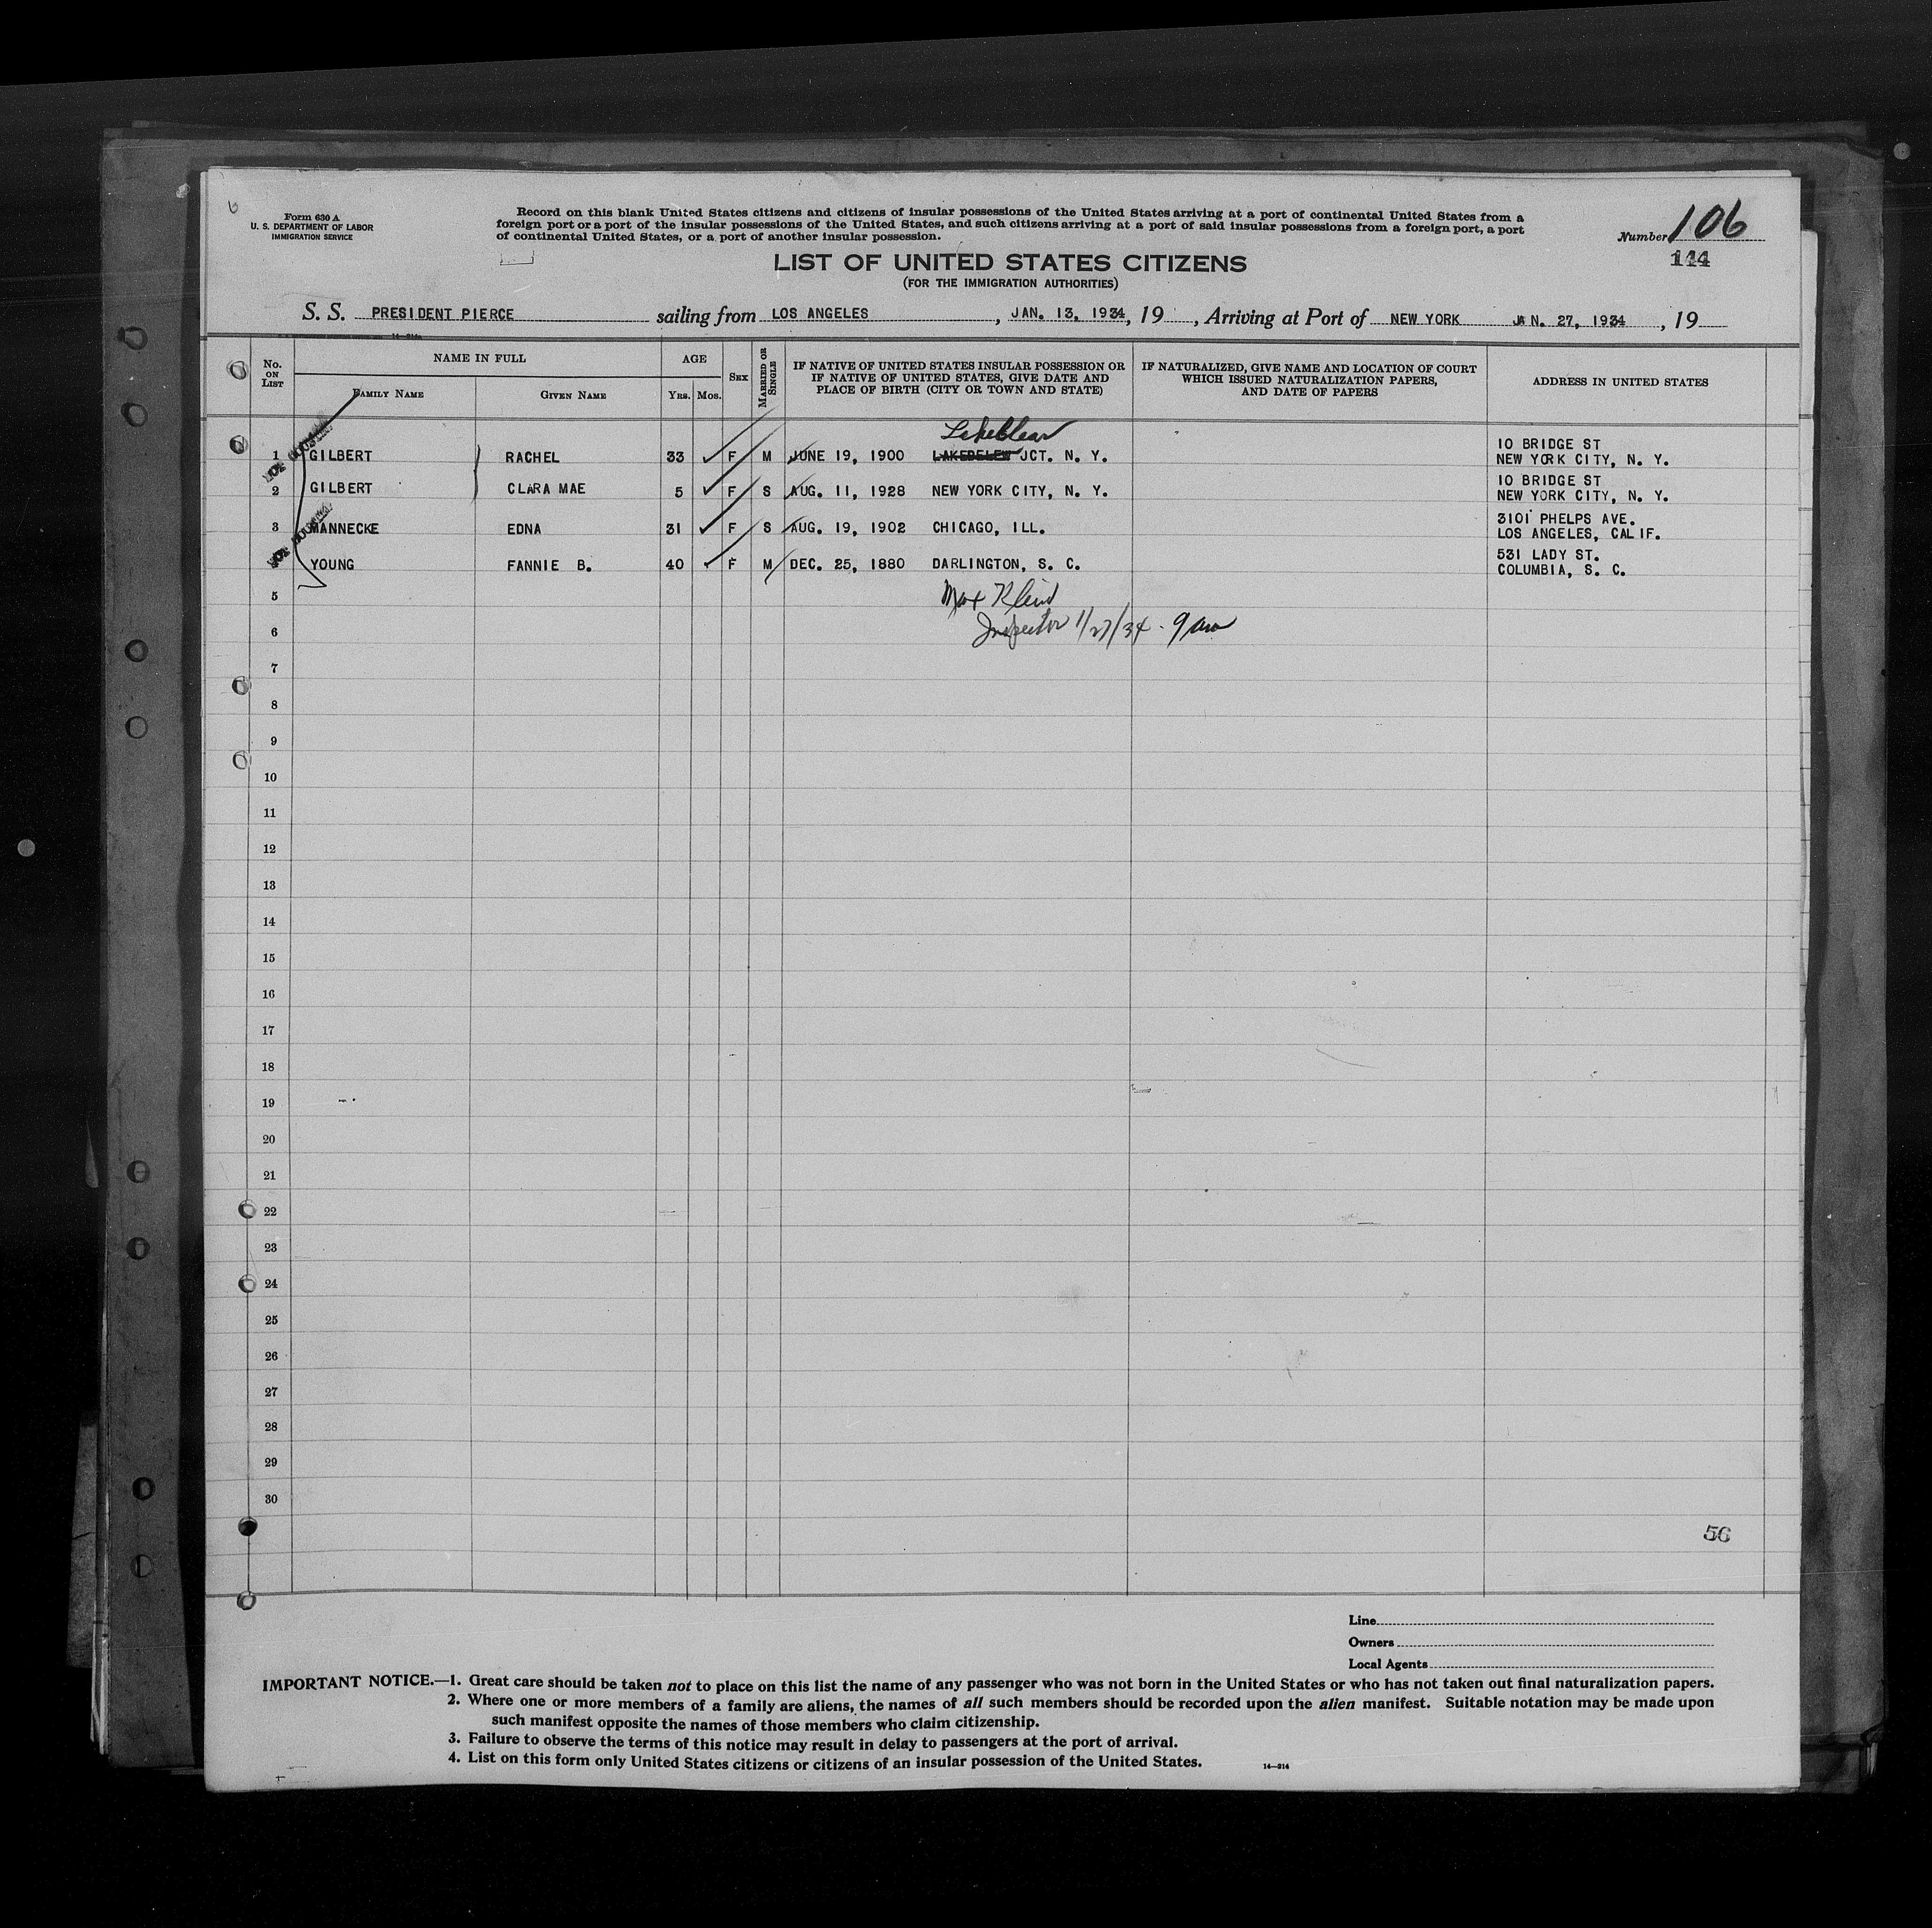 Form 630 A
U. S. DEPARTMENT OF LABOR
IMMIGRATION SERVICE
Record on this blank United States citizens and citizens of insular possessions of the United States arriving at a port of continental United States from a
foreign port or a port of the insular possessions of the United States, and such citizens arriving at a port of said insular possessions from a foreign port, a port
of continental United States, or a port of another insular possession.
Number 106
144
LIST OF UNITED STATES CITIZENS
(FOR THE IMMIGRATION AUTHORITIES)
S. S. PRESIDENT PIERCE sailing from LOS ANGELES , JAN. 13, 1934, 19 , Arriving at Port of NEW YORK JAN. 27, 1934 , 19
No. ON LIST
NAME IN FULL
FAMILY NAME
GIVEN NAME
AGE
YRS.
MOS.
SEX
MARRIED OR SINGLE
IF NATIVE OF UNITED STATES INSULAR POSSESSION OR
IF NATIVE OF UNITED STATES, GIVE DATE AND
PLACE OF BIRTH (CITY OR TOWN AND STATE)
IF NATURALIZED, GIVE NAME AND LOCATION OF COURT
WHICH ISSUED NATURALIZATION PAPERS,
AND DATE OF PAPERS
ADDRESS IN UNITED STATES
Lakeclear
1 GILBERT RACHEL 33 F M JUNE 19, 1900 JCT. N. Y. 10 BRIDGE ST
NEW YORK CITY, N. Y.
2 GILBERT CLARA MAE 5 F S AUG. 11, 1928 NEW YORK CITY, N. Y. 10 BRIDGE ST
NEW YORK CITY, N. Y.
3 MANNECKE EDNA 31 F S AUG. 19, 1902 CHICAGO, ILL. 3101 PHELPS AVE.
LOS ANGELES, CALIF.
YOUNG FANNIE B. 40 F M DEC. 25, 1880 DARLINGTON, S. C. 531 LADY ST.
COLUMBIA, S. C.
5 Max
6 Inspector 1/27/34 - 9 am
7
8
9
10
11
12
13
14
15
16
17
18
19
20
21
22
23
24
25
26
27
28
29
30
56
Line
Owners
Local Agents
IMPORTANT NOTICE.—1. Great care should be taken not to place on this list the name of any passenger who was not born in the United States or who has not taken out final naturalization papers.
2. Where one or more members of a family are aliens, the names of all such members should be recorded upon the alien manifest. Suitable notation may be made upon
such manifest opposite the names of those members who claim citizenship.
3. Failure to observe the terms of this notice may result in delay to passengers at the port of arrival.
4. List on this form only United States citizens or citizens of an insular possession of the United States.
14—314